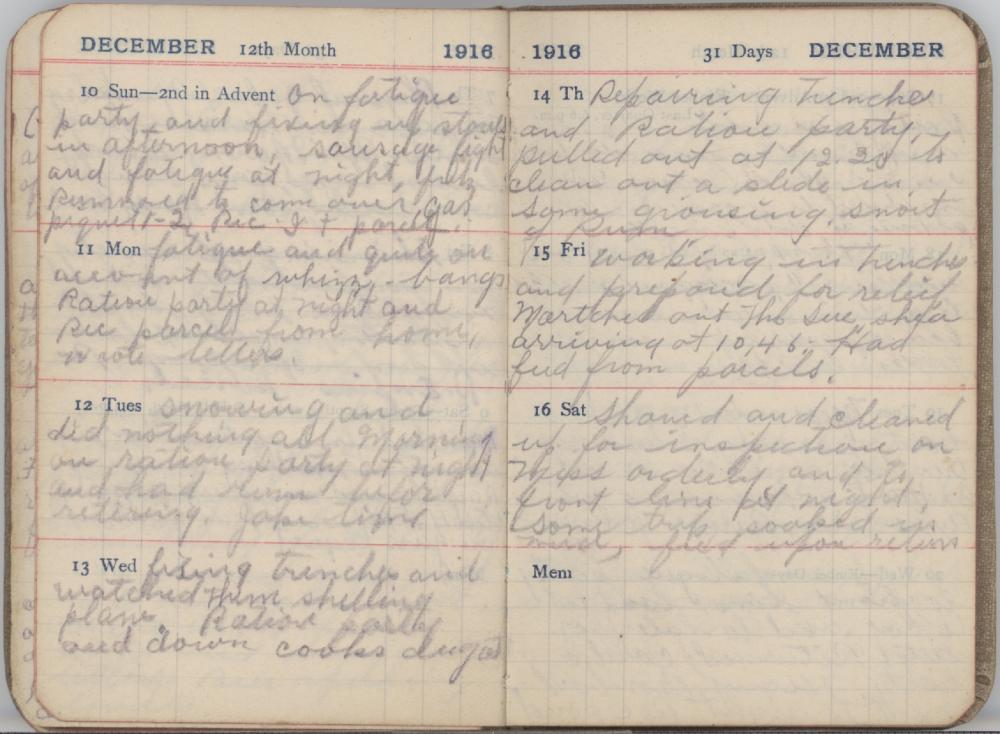 DECEMBER 12th Month 1916
10 Sun—2nd in Advent On fatigue
party and fixing up
in afternoon, sausage fight
and fatigue at night, Fritz
to come over, gas
1-2, Rec. I + parcel.
11 Mon fatigue and quite on
account of whizz-bangs
Ration party at night and
Rec parcel from home,
wrote letters.
12 Tues snowing and
did nothing all Morning
on ration party at night
and had rum before
retiring.
13 Wed fixing trenches and
watched them shelling
plane. Ration party
and down cooks dugout
1916 31 Days DECEMBER
14 Th Repairing trenches
and Ration party,
pulled out at 12.30 to
clean out a slide in
some grousing, snort
of Rum
15 Fri working in trenches
and prepared for relief
Martched out
arriving at 10,45. Had
feed from parcels.
16 Sat Shaved and cleaned
up for inspection on
Mess orderly and to
front line at night,
some trip soaked in
mud, feed upon return
Mem